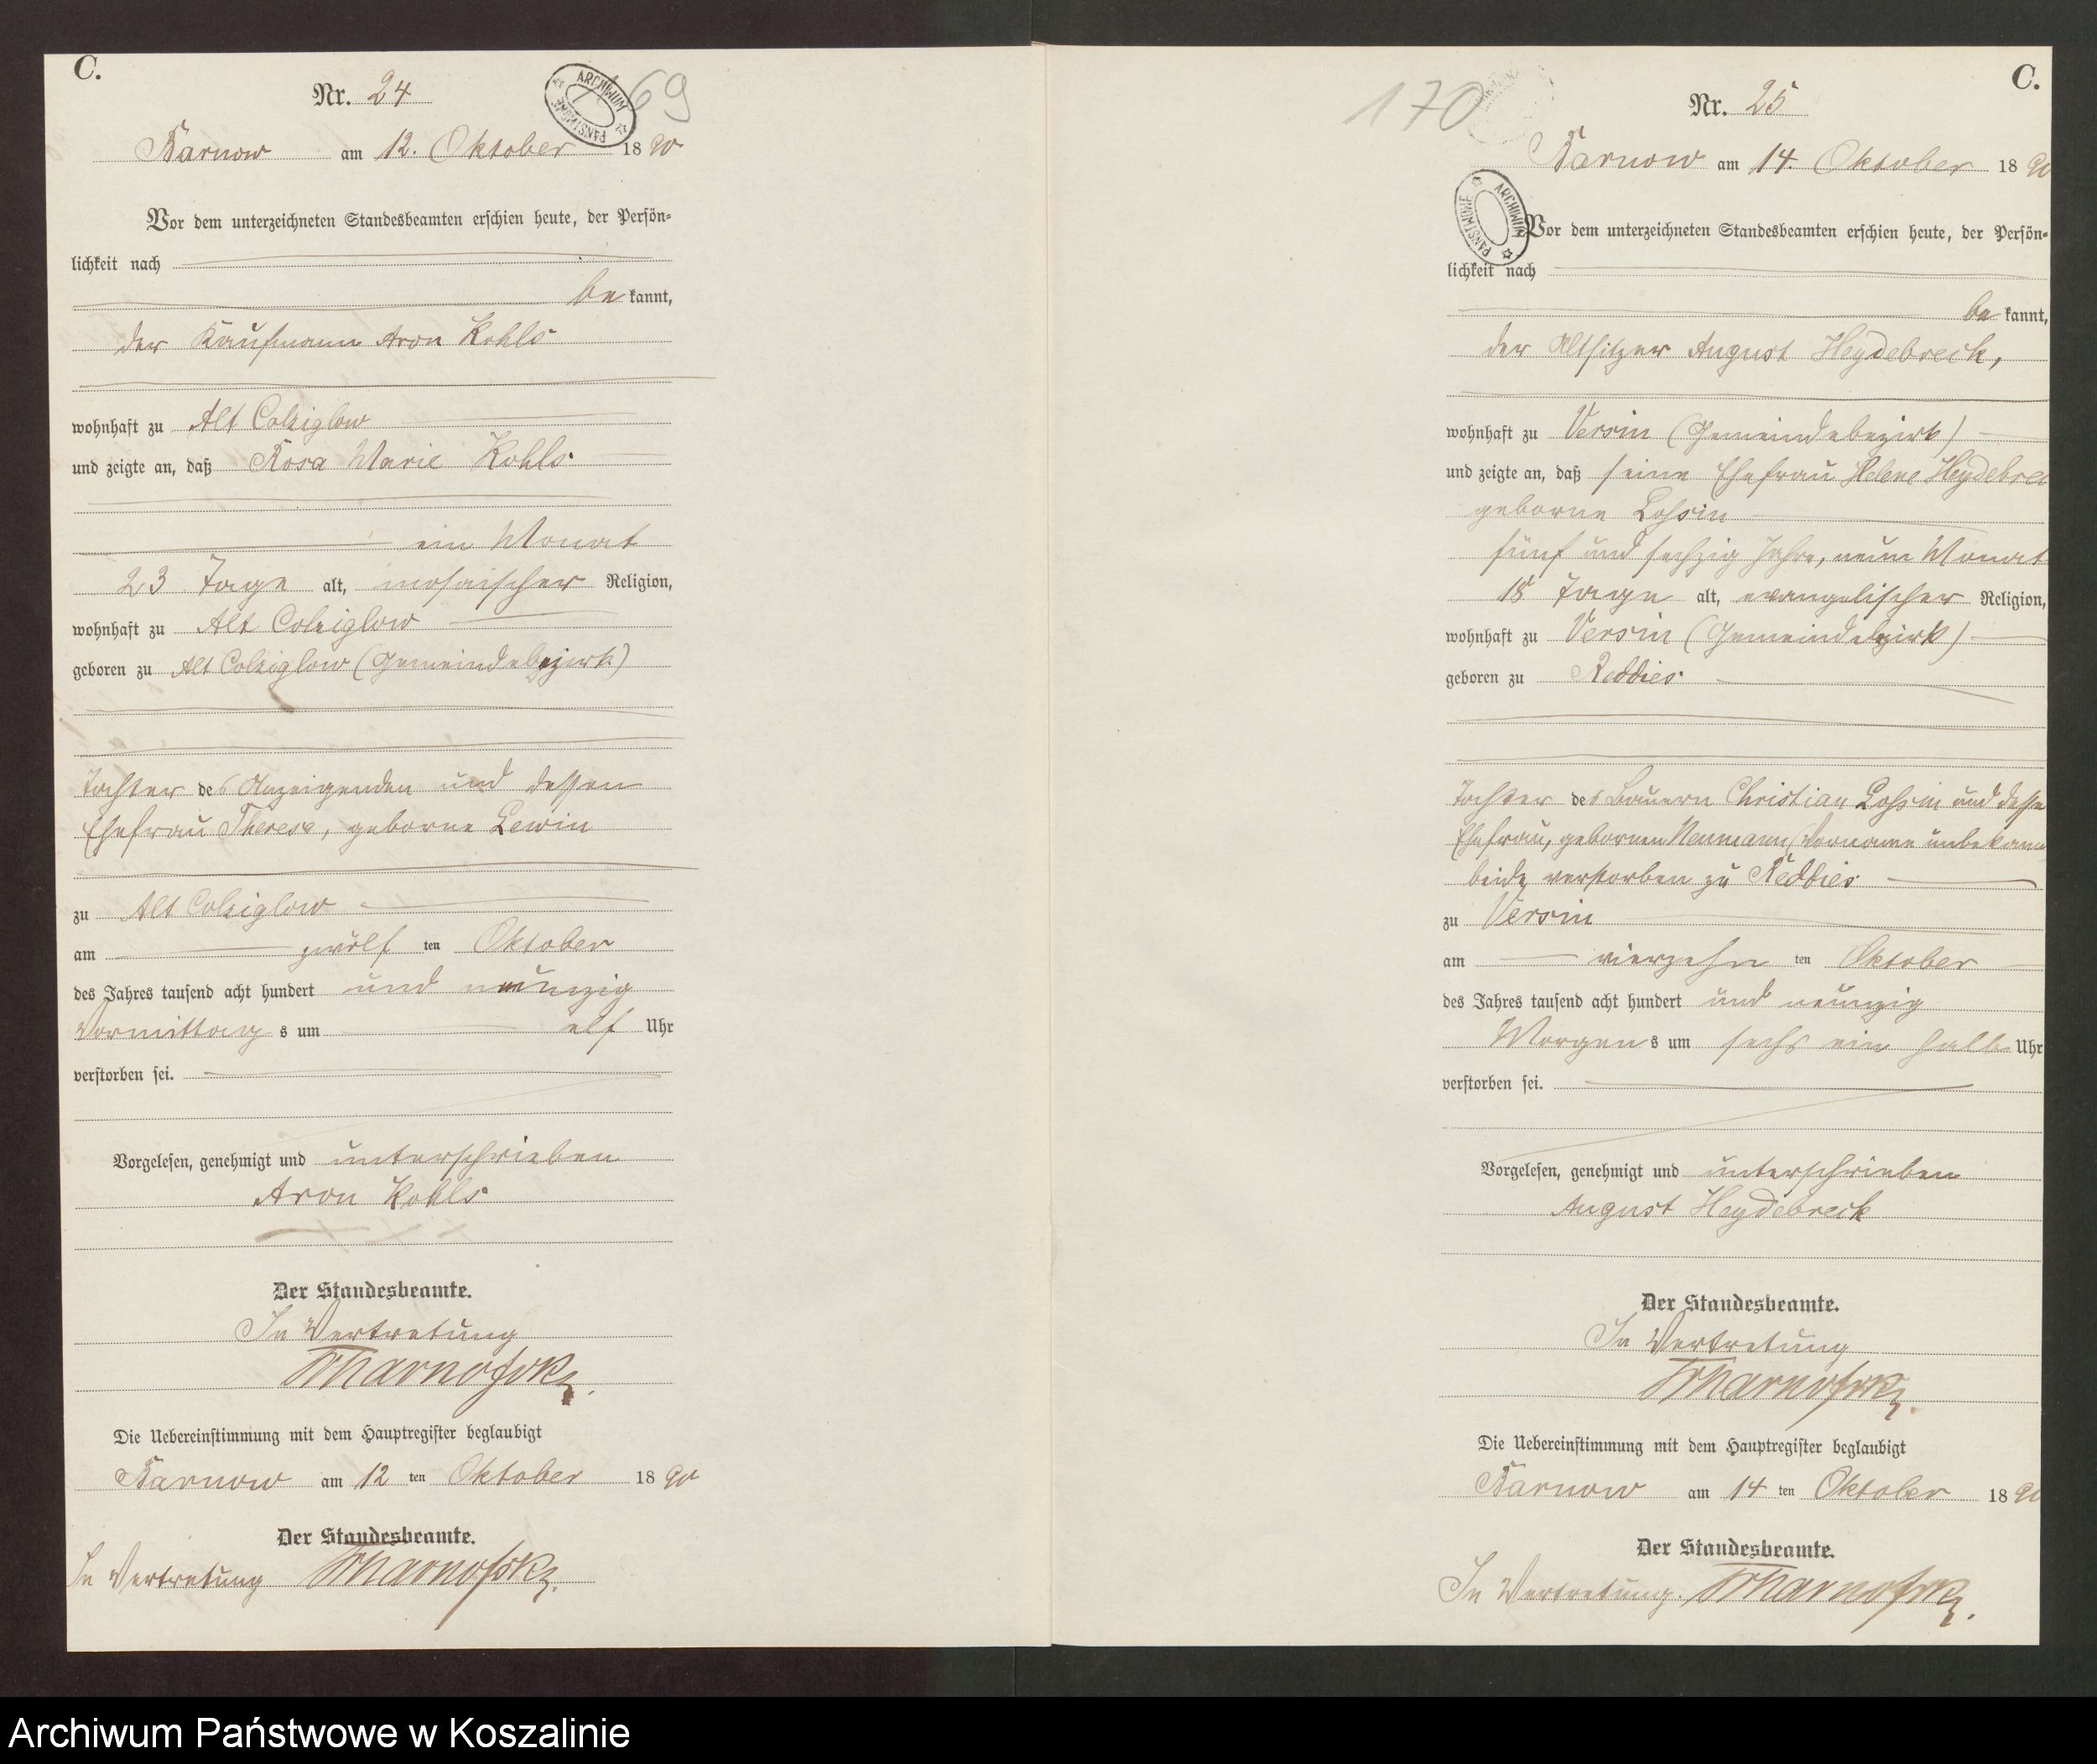 C.
Nr. 24
169
ARCHIWUM PAŃSTWOWE
Barnow am 12. Oktober 1890
Vor dem unterzeichneten Standesbeamten erschien heute, der Persön-
lichkeit nach
bekannt,
der Kaufmann Aron Kohls
wohnhaft zu Alt Colziglow
und zeigte an, daß Rosa Marie Kohls
ein Monat
23 Tage alt, mosaischer Religion,
wohnhaft zu Alt Colziglow
geboren zu Alt Colziglow (Gemeindebezirk)
Tochter des Anzeigenden und dessen
Ehefrau Therese, geborne Lewin
zu Alt Colziglow
am zwölf ten Oktober
des Jahres tausend acht hundert und neunzig
Vormittags um elf Uhr
verstorben sei.
Vorgelesen, genehmigt und unterschrieben
Aron Kohls
Der Standesbeamte.
In Vertretung
Die Uebereinstimmung mit dem Hauptregister beglaubigt
Barnow am 12 ten Oktober 1890
Der Standesbeamte.
In Vertretung
C.
170
Nr. 25
Barnow am 14. Oktober 1890
ARCHIWUM PAŃSTWOWE
Vor dem unterzeichneten Standesbeamten erschien heute, der Persön-
lichkeit nach
bekannt,
der Altsitzer August Heydebreck,
wohnhaft zu Versin (Gemeindebezirk)
und zeigte an, daß seine Ehefrau Helene Heydebrec
geborne Lossin
fünf und sechzig Jahre, neun Monat
18 Tage alt, evangelischer Religion,
wohnhaft zu Versin (Gemeindebezirk)
geboren zu Reddies
Tochter des Bauern Christian Lossin und desse
Ehefrau, gebornen Neumann (Vorname unbekann
beide verstorben zu Reddies
zu Versin
am vierzehn ten Oktober
des Jahres tausend acht hundert und neunzig
Morgens um sechs ein halb Uhr
verstorben sei.
Vorgelesen, genehmigt und unterschrieben
August Heydebreck
Der Standesbeamte.
In Vertretung
Die Uebereinstimmung mit dem Hauptregister beglaubigt
Barnow am 14 ten Oktober 1890
Der Standesbeamte.
In Vertretung.
Archiwum Państwowe w Koszalinie